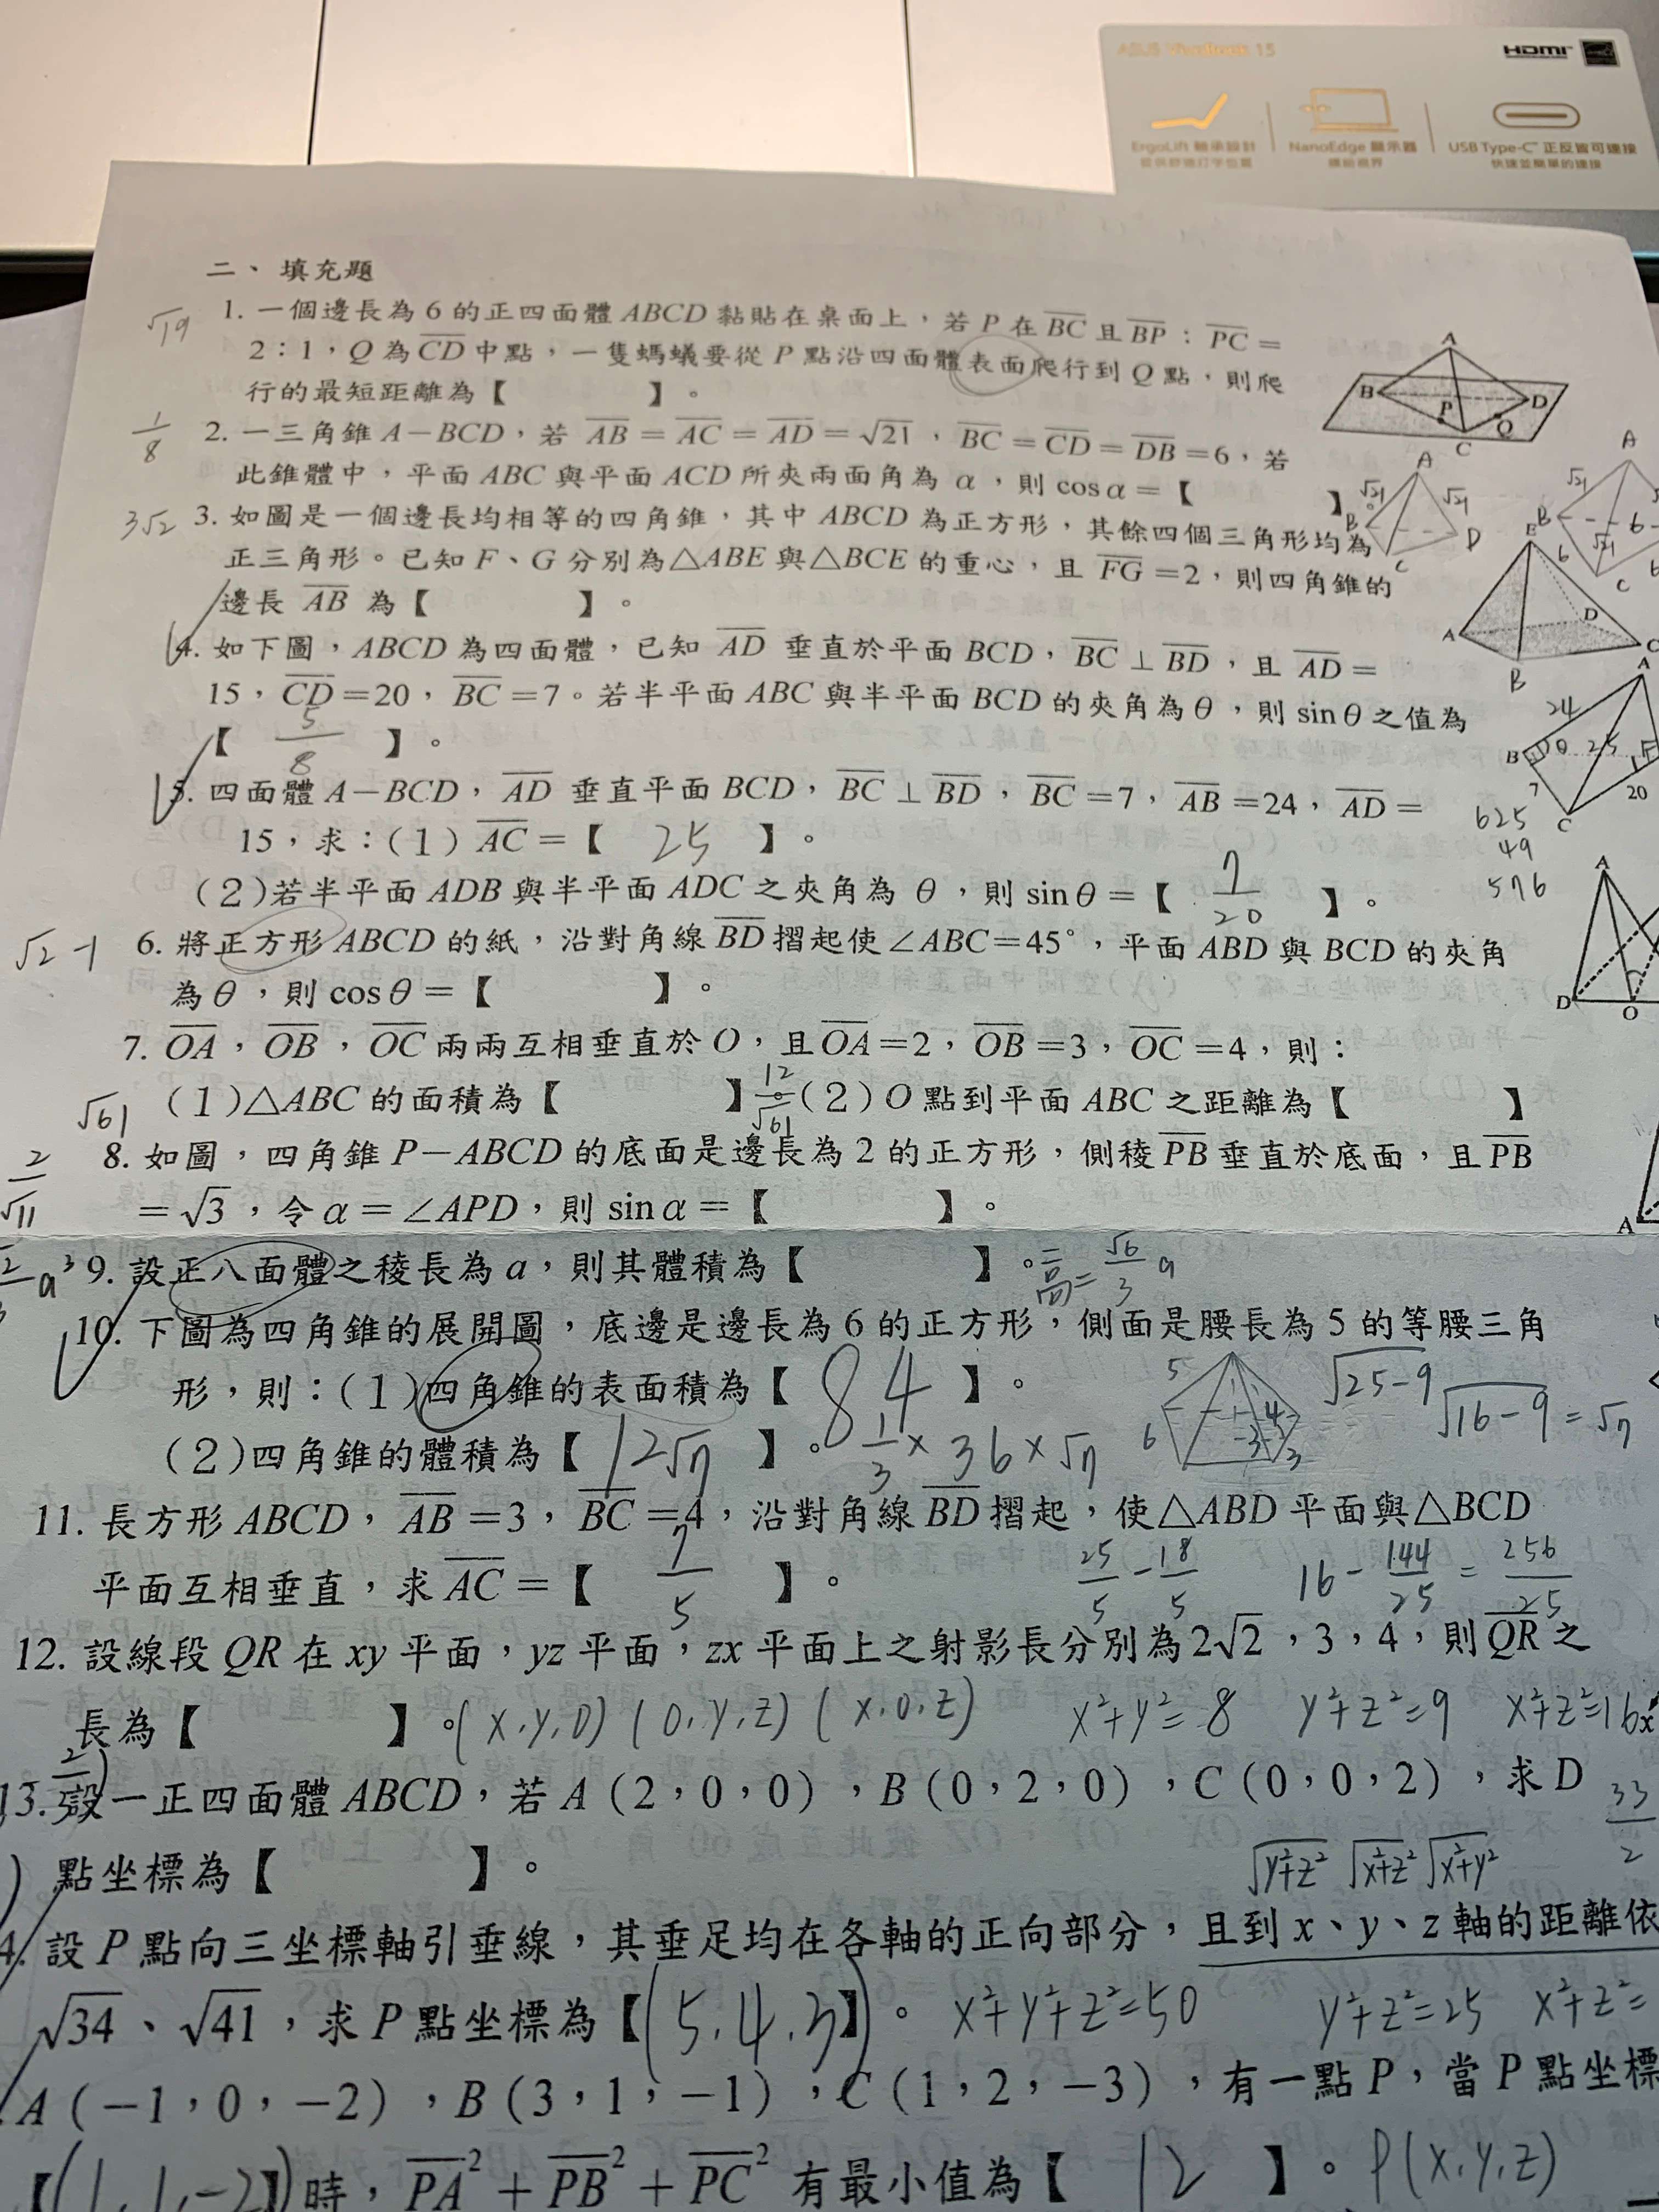 ASUS VivoBook 15
HDMI
ErgoLift 軸承設計
NanoEdge 顯示器
USB Type-C 正反皆可連接
快速並簡單的連接
二、填充題
√19
1. 一個邊長為6的正四面體ABCD黏貼在桌面上,若P在BC且BP:PC=
2:1,Q為CD中點,一隻螞蟻要從P點沿四面體表面爬行到Q點,則爬
行的最短距離為【 】。
A
B
P
D
Q
C
1/8
2. 一三角錐A-BCD,若AB=AC=AD=√21,BC=CD=DB=6,若
此錐體中,平面ABC與平面ACD所夾兩面角為α,則cosα=【 】。
A
√21
√21
B
D
C
A
√21
B
6
√21
6
C
3√2
3. 如圖是一個邊長均相等的四角錐,其中ABCD為正方形,其餘四個三角形均為
正三角形。已知F、G分別為△ABE與△BCE的重心,且FG=2,則四角錐的
邊長AB為【 】。
E
A
D
C
B
4. 如下圖,ABCD為四面體,已知AD垂直於平面BCD,BC⊥BD,且AD=
15,CD=20,BC=7。若半平面ABC與半平面BCD的夾角為θ,則sinθ之值為
【 5/8 】。
A
24
B
θ
25
7
20
C
5. 四面體A-BCD,AD垂直平面BCD,BC⊥BD,BC=7,AB=24,AD=
15,求:(1)AC=【 25 】。
(2)若半平面ADB與半平面ADC之夾角為θ,則sinθ=【 7/20 】。
625
49
576
√2-1
6. 將正方形ABCD的紙,沿對角線BD摺起使∠ABC=45°,平面ABD與BCD的夾角
為θ,則cosθ=【 】。
A
D
O
7. OA,OB,OC兩兩互相垂直於O,且OA=2,OB=3,OC=4,則:
√61
(1)△ABC的面積為【 】。(2)O點到平面ABC之距離為【 】
12/√61
2/√11
8. 如圖,四角錐P-ABCD的底面是邊長為2的正方形,側稜PB垂直於底面,且PB
=√3,令α=∠APD,則sinα=【 】。
A
9. 設正八面體之稜長為a,則其體積為【 】。
高=√6/3 a
10. 下圖為四角錐的展開圖,底邊是邊長為6的正方形,側面是腰長為5的等腰三角
形,則:(1)四角錐的表面積為【 84 】。
5
6
4
3
3
√25-9
√16-9=√7
(2)四角錐的體積為【 12√7 】。
1/3×36×√7
11. 長方形ABCD,AB=3,BC=4,沿對角線BD摺起,使△ABD平面與△BCD
平面互相垂直,求AC=【 7/5 】。
25/5-18/5
16-144/25=256/25
12. 設線段QR在xy平面,yz平面,zx平面上之射影長分別為2√2,3,4,則QR之
長為【 】。
(x,y,0) (0,y,z) (x,0,z) x²+y²=8 y²+z²=9 x²+z²=16
33/2
13. 設一正四面體ABCD,若A(2,0,0),B(0,2,0),C(0,0,2),求D
點坐標為【 】。
√y²+z² √x²+z² √x²+y²
4. 設P點向三坐標軸引垂線,其垂足均在各軸的正向部分,且到x、y、z軸的距離依
√34、√41,求P點坐標為【(5,4,3)】。
x²+y²+z²=50 y²+z²=25 x²+z²=
A(-1,0,-2),B(3,1,-1),C(1,2,-3),有一點P,當P點坐標
【(1,1,-2)】時,PA²+PB²+PC²有最小值為【 12 】。
P(x,y,z)